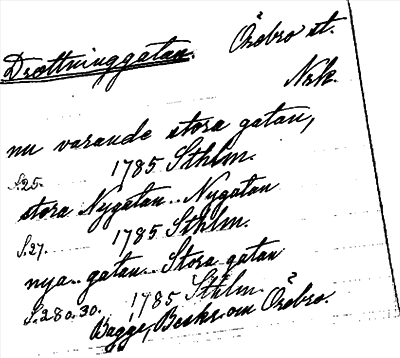 Drottninggatan. Örebro st.
Nrk.
nu varande stora gatan,
S.25. 1785 Sthlm.
stora Nygatan.. Nygatan
S.27. 1785 Sthlm.
nya.. gatan.. Stora gatan
S.28 o. 30. 1785 Sthlm.
Bagge, Beskr. om Örebro.